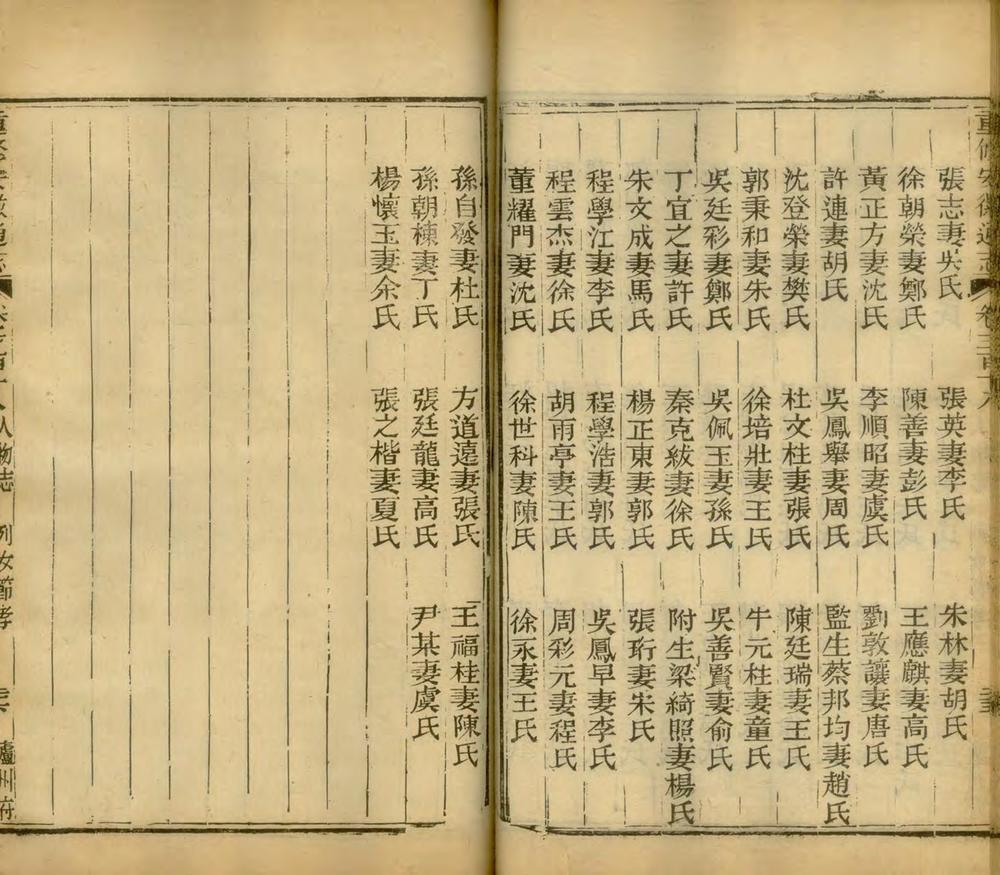 重修安徽通志 卷三百十八
張志妻吳氏 張英妻李氏 朱林妻胡氏
徐朝榮妻鄭氏 陳善妻彭氏 王應麒妻高氏
黃正方妻沈氏 李順昭妻虞氏 劉敦讓妻唐氏
許連妻胡氏 吳鳳舉妻周氏 監生蔡邦均妻趙氏
沈登榮妻樊氏 杜文柱妻張氏 陳廷瑞妻王氏
郭秉和妻朱氏 徐培壯妻王氏 牛元柱妻童氏
吳廷彩妻鄭氏 吳佩玉妻孫氏 吳善賢妻俞氏
丁宜之妻許氏 秦克紱妻徐氏 附生梁綺照妻楊氏
朱文成妻馬氏 楊正東妻郭氏 張珩妻朱氏
程學江妻李氏 程學浩妻郭氏 吳鳳早妻李氏
程雲杰妻徐氏 胡雨亭妻王氏 周彩元妻程氏
董耀門妻沈氏 徐世科妻陳氏 徐永妻王氏
孫自發妻杜氏 方道遠妻張氏 王福桂妻陳氏
孫朝棟妻丁氏 張廷龍妻高氏 尹某妻虞氏
楊懷玉妻余氏 張之楷妻夏氏
重修安徽通志 人物志 列女節孝 廬州府